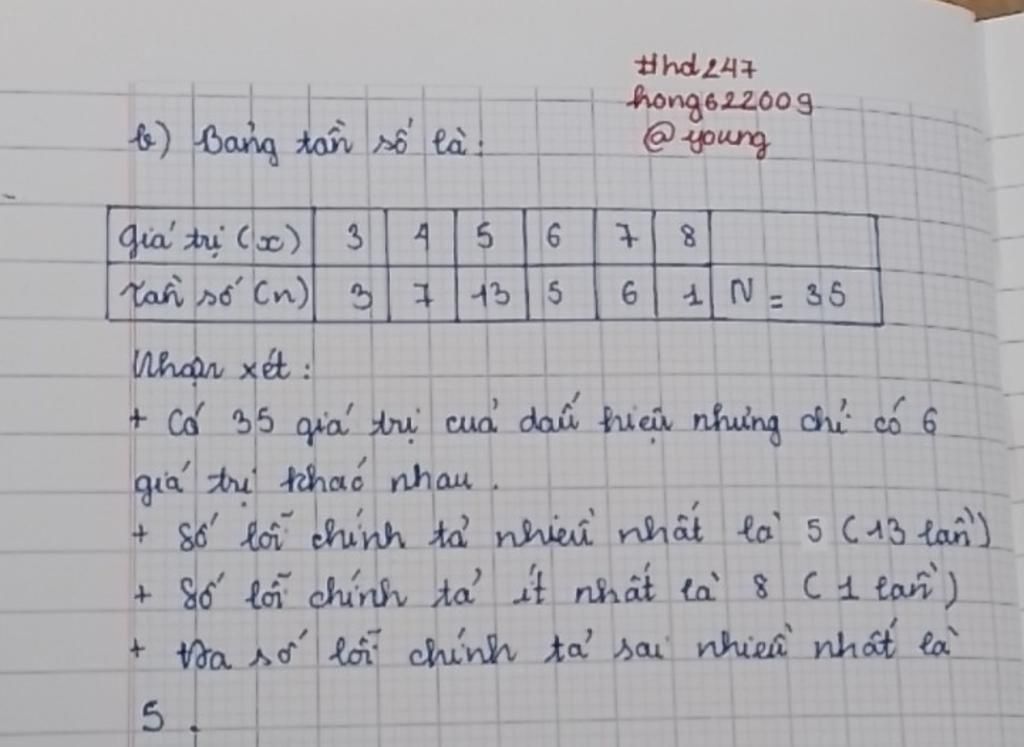 #hd247
hong622009
@young
b) Bảng tần số là:
Giá trị (x) 3 4 5 6 7 8
Tần số (n) 3 7 13 5 6 1 N = 35
Nhận xét:
+ Có 35 giá trị của dấu hiệu nhưng chỉ có 6
giá trị khác nhau.
+ Số lỗi chính tả nhiều nhất là 5 (13 lần)
+ Số lỗi chính tả ít nhất là 8 (1 lần)
+ Đa số lỗi chính tả sai nhiều nhất là
5.